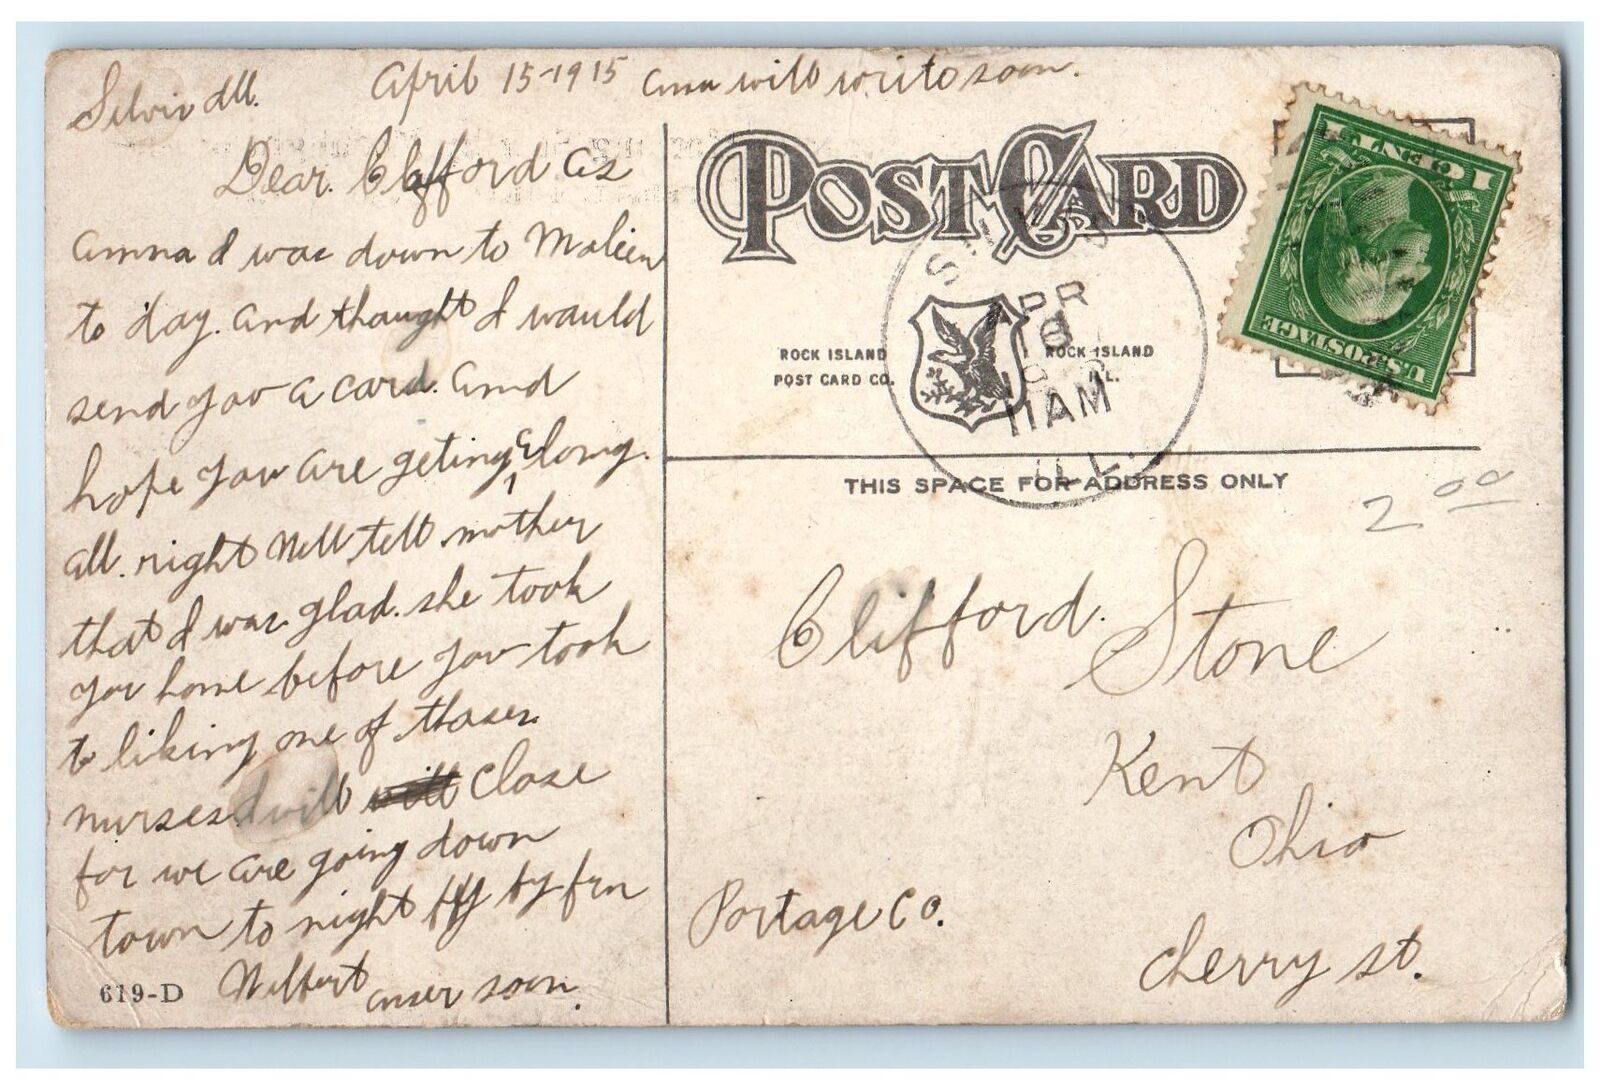 Silvis Ill. April 15-1915 Anna will write soon.
Dear. Clifford as
Anna I was down to Moliene
to day. and thaught I would
send you a card. And
hope you are geting along.
all. right Well tell mother
that I was. glad. she took
you home before you took
to liking one of thoses
nurses I will close
for we are going down
town to night by
Wilbert anser soon.
619-D
POST CARD
ROCK ISLAND
POST CARD CO.
ROCK ISLAND
ILL.
SILVIS
APR
16
11 AM
ILL.
1 CENT 1
U.S. POSTAGE
THIS SPACE FOR ADDRESS ONLY
2 00
Clifford. Stone
Kent
Ohio
Portage Co.
Cherry st.